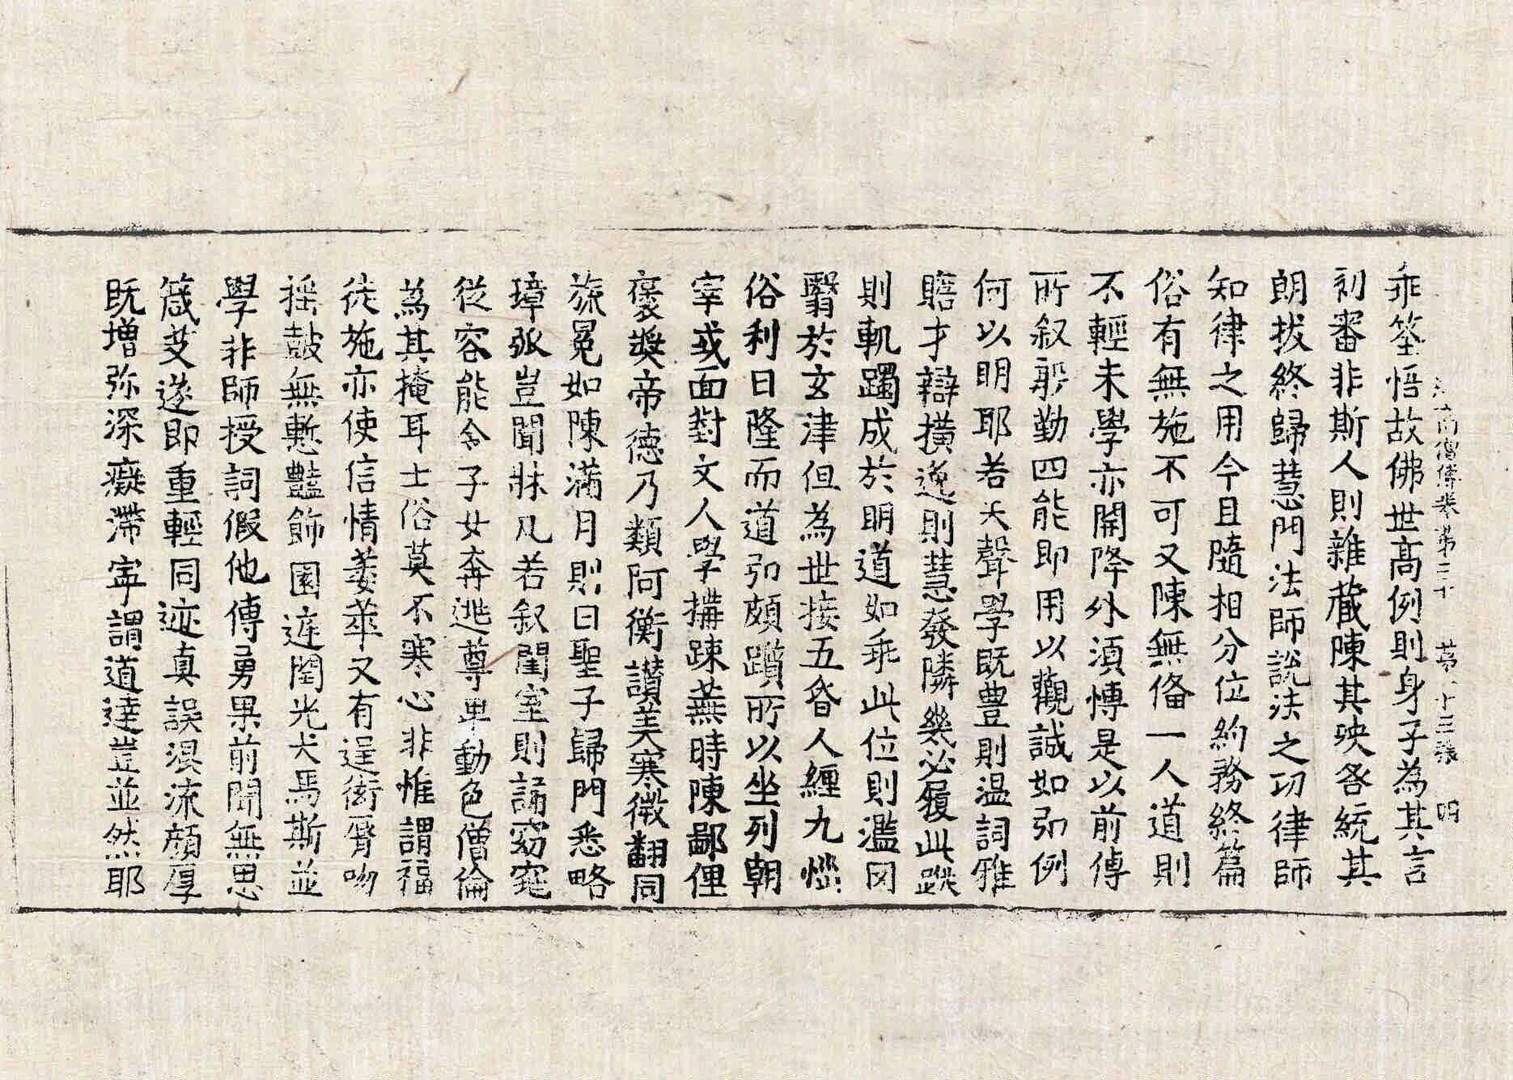 續高僧傳卷第三十 第十三張 明
乖筌悟故佛世髙例則身子為其言
初審非斯人則雜藏陳其殃各統其
朗拔終歸慧門法師說法之功律師
知律之用今且隨相分位約務終篇
俗有無施不可又陳無俻一人道則
不輕未學亦開降外湏慱是以前傳
所叙躬勤四能即用以觀誡如引例
何以明耶若夫聲學既豊則温詞雅
贍才辯横逸則慧發隣幾必履此蹤
則軌躅成於明道如乖此位則濫罔
翳於玄津但為世接五昏人纏九惱
俗利日隆而道引頗躓所以坐列朝
宰或面對文人學搆踈蕪時陳鄙俚
褒奬帝德乃類阿衡讃美寒微翻同
旒冕如陳滿月則曰聖子歸門悉略
璋弧豈聞牀几若叙閨室則誦窈窕
從容能令子女奔逃尊卑動色僧倫
為其掩耳士俗莫不寒心非惟謂福
徒施亦使信情萎萃又有逞衒脣吻
摇鼓無慙艷飾園㢠閏光犬馬斯並
學非師授詞假他傳勇果前聞無思
箴艾遂即重輕同迹真誤混流顔厚
既增弥深癡滯寕謂道達豈並然耶